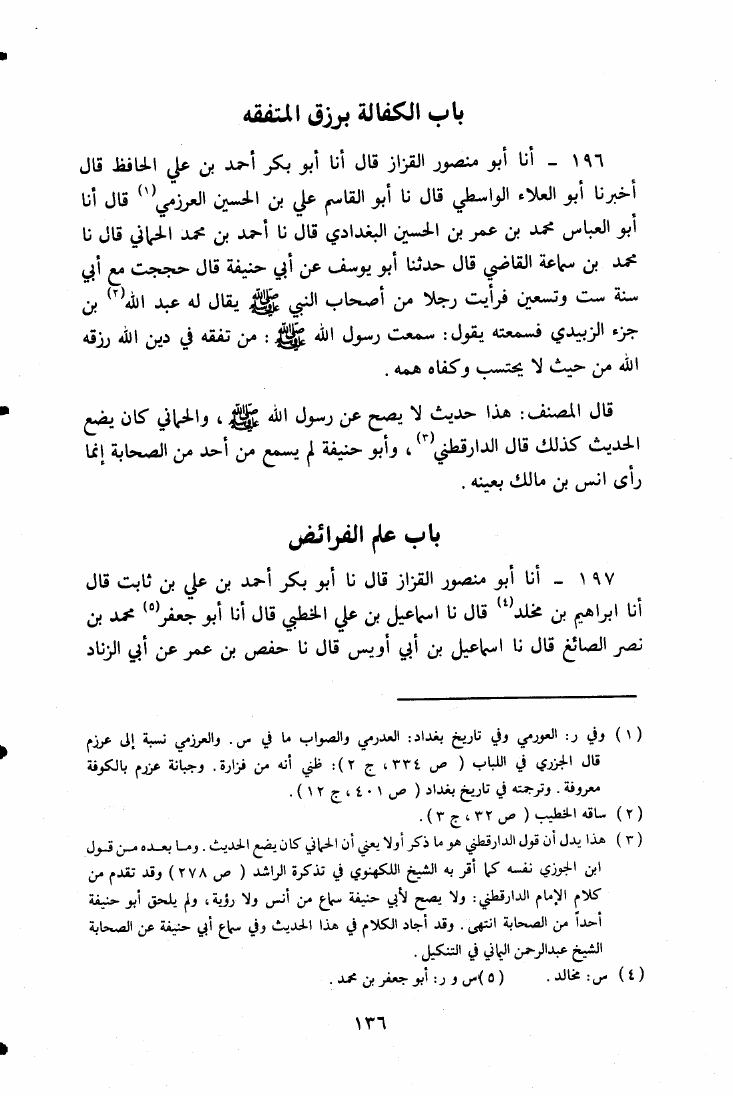 باب الكفالة برزق المتفقه
١٩٦ ـ أنا أبو منصور القزاز قال أنا أبو بكر أحمد بن علي الحافظ قال
أخبرنا أبو العلاء الواسطي قال نا أبو القاسم علي بن الحسين العرزمي(١) قال أنا
أبو العباس محمد بن عمر بن الحسين البغدادي قال نا أحمد بن محمد الحماني قال نا
محمد بن سماعة القاضي قال حدثنا أبو يوسف عن أبي حنيفة قال حججت مع أبي
سنة ست وتسعين فرأيت رجلا من أصحاب النبي ﷺ يقال له عبد الله(٢) بن
جزء الزبيدي فسمعته يقول: سمعت رسول الله ﷺ : من تفقه في دين الله رزقه
الله من حيث لا يحتسب وكفاه همه .
قال المصنف: هذا حديث لا يصح عن رسول الله ﷺ ، والحماني كان يضع
الحديث كذلك قال الدارقطني(٣) ، وأبو حنيفة لم يسمع من أحد من الصحابة إنما
رأى انس بن مالك بعينه .
باب علم الفرائض
١٩٧ ـ أنا أبو منصور القزاز قال نا أبو بكر أحمد بن علي بن ثابت قال
أنا ابراهيم بن مخلد(٤) قال نا اسماعيل بن علي الخطبي قال أنا أبو جعفر(٥) محمد بن
نصر الصائغ قال نا اسماعيل بن أبي أويس قال نا حفص بن عمر عن أبي الزناد
(١) وفي ر: العورمي وفي تاريخ بغداد: العدرمي والصواب ما في س. والعرزمي نسبة إلى عرزم
قال الجزري في اللباب ( ص ٣٣٤ ، ج ٢): ظني أنه من فزارة. وجبانة عزرم بالكوفة
معروفة . وترجمته في تاريخ بغداد ( ص ٤٠١ ، ج ١٢).
(٢) ساقه الخطيب ( ص ٣٢ ، ج ٣).
(٣) هذا يدل أن قول الدارقطني هو ما ذكر أولا يعني أن الحماني كان يضع الحديث. وما بعده من قول
ابن الجوزي نفسه كما أقر به الشيخ اللكهنوي في تذكرة الراشد ( ص ٢٧٨) وقد تقدم من
كلام الإمام الدارقطني: ولا يصح لأبي حنيفة سماع من أنس ولا رؤية، ولم يلحق أبو حنيفة
أحداً من الصحابة انتهى. وقد أجاد الكلام في هذا الحديث وفي سماع أبي حنيفة عن الصحابة
الشيخ عبدالرحمن اليماني في التنكيل .
(٤) س: مخالد . (٥)س و ر: أبو جعفر بن محمد .
١٣٦